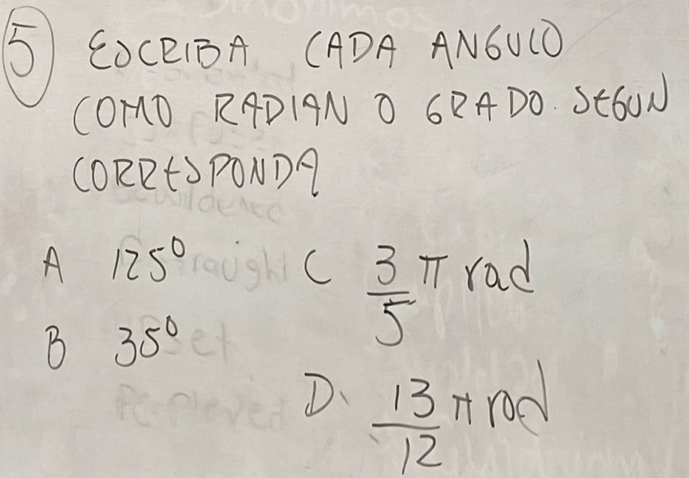 5 ESCRIBA CADA ANGULO
COMO RADIAN O GRADO SEGUN
CORRESPONDA
A 125° C 3/5 π rad
B 35°
D. 13/12 π rad